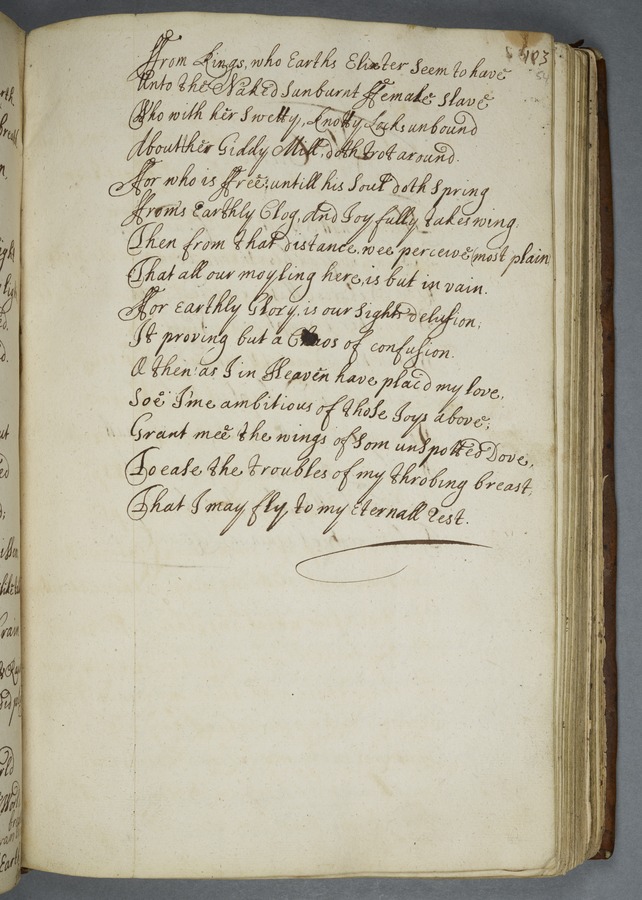 103
54
From Kings, who Earths Elixter Seem to have
Unto the Naked Sunburnt Female Slave
Who with her Swetty, Knotty Locks unbound
About her Giddy Mill, doth trot around.
For who is Free, untill his Soul doth Spring
From's Earthly Clog, and Joyfully takes wing.
Then from that distance, wee perceive most plain
That all our moyling here, is but in vain.
For Earthly Glory, is our Sights delusion;
It proving but a Chaos of confusion.
O then as I in Heaven have plac'd my love,
Soe I'me ambitious of those Joys above;
Grant mee the wings of Som unspotted Dove,
To ease the troubles of my throbing breast,
That I may fly, to my Eternall Rest.